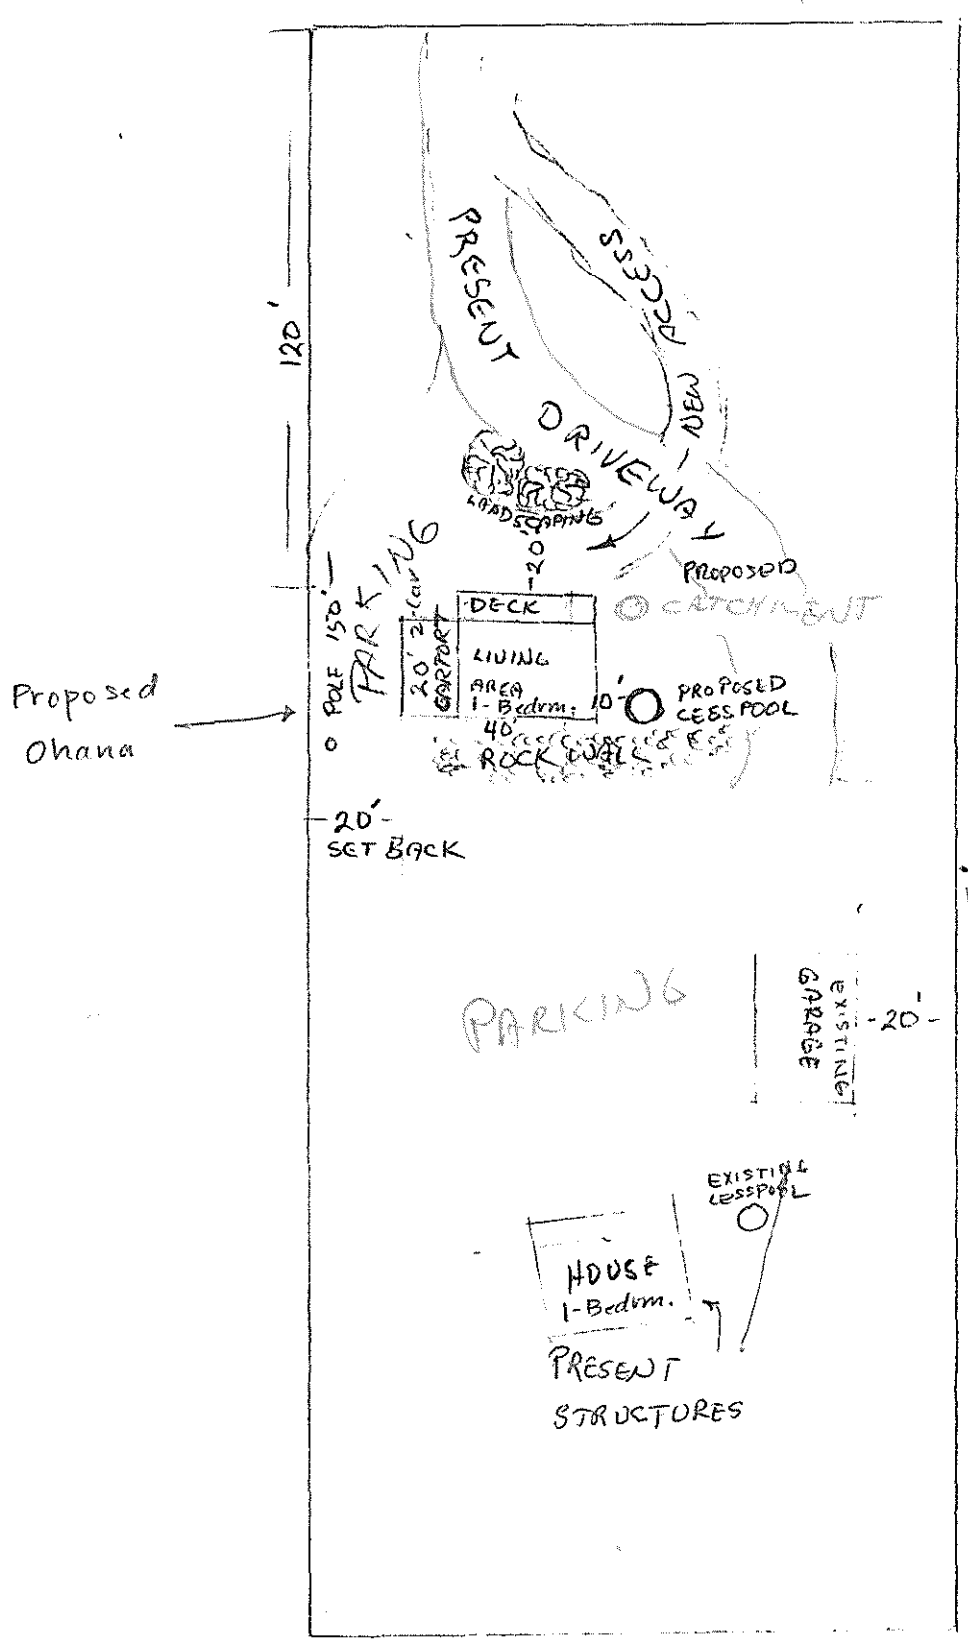 PRESENT
NEW ACCESS
120'
DRIVEWAY
LANDSCAPING
-20'-
PROPOSED
CATCHMENT
PARKING
POLE 150'
20' 2-Car
CARPORT
DECK
LIVING
AREA
1-Bedrm.
10'-
40'
PROPOSED
CESSPOOL
ROCK WALL
Proposed
Ohana
-20'-
SET BACK
PARKING
EXISTING
GARAGE
-20'-
EXISTING
CESSPOOL
HOUSE
1-Bedrm.
PRESENT
STRUCTURES